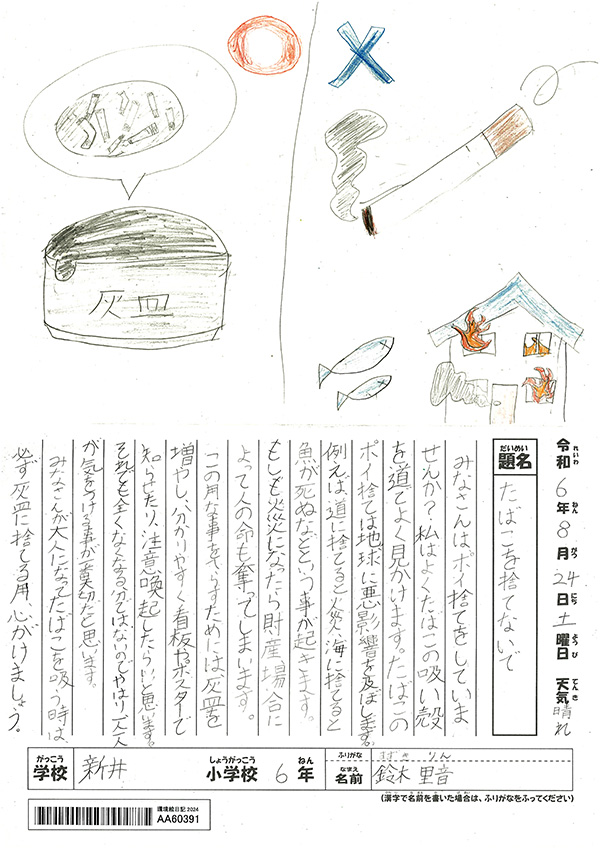 灰皿
令和6年8月24日土曜日 天気 晴れ
れいわ ねん がつ にち ようび てんき
だいめい
題名
たばこを捨てないで
みなさんは、ポイ捨てをしていま
せんか?私はよくたばこの吸い殻
を道でよく見かけます。たばこの
ポイ捨ては地球に悪影響を及ぼします。
例えば、道に捨てると火災、海に捨てると
魚が死ぬなどという事が起きます。
もしも火災になったら財産場合に
よって人の命も奪ってしまいます。
この用な事をへらすためには灰皿を
増やし、分かりやすく看板やポスターで
知らせたり、注意喚起したらいいと思います。
それでも全くなくなる分ではないのでやはり一人一人
が気をつける事が大切だと思います。
みなさんが大人になってたばこを吸う時は
必ず灰皿に捨てる用、心がけましょう。
がっこう しょうがっこう ねん
学校 新井 小学校 6年
ふりがな すずき りん
なまえ
名前 鈴木 里音
(漢字で名前を書いた場合は、ふりがなをふってください)
環境絵日記2024
AA60391